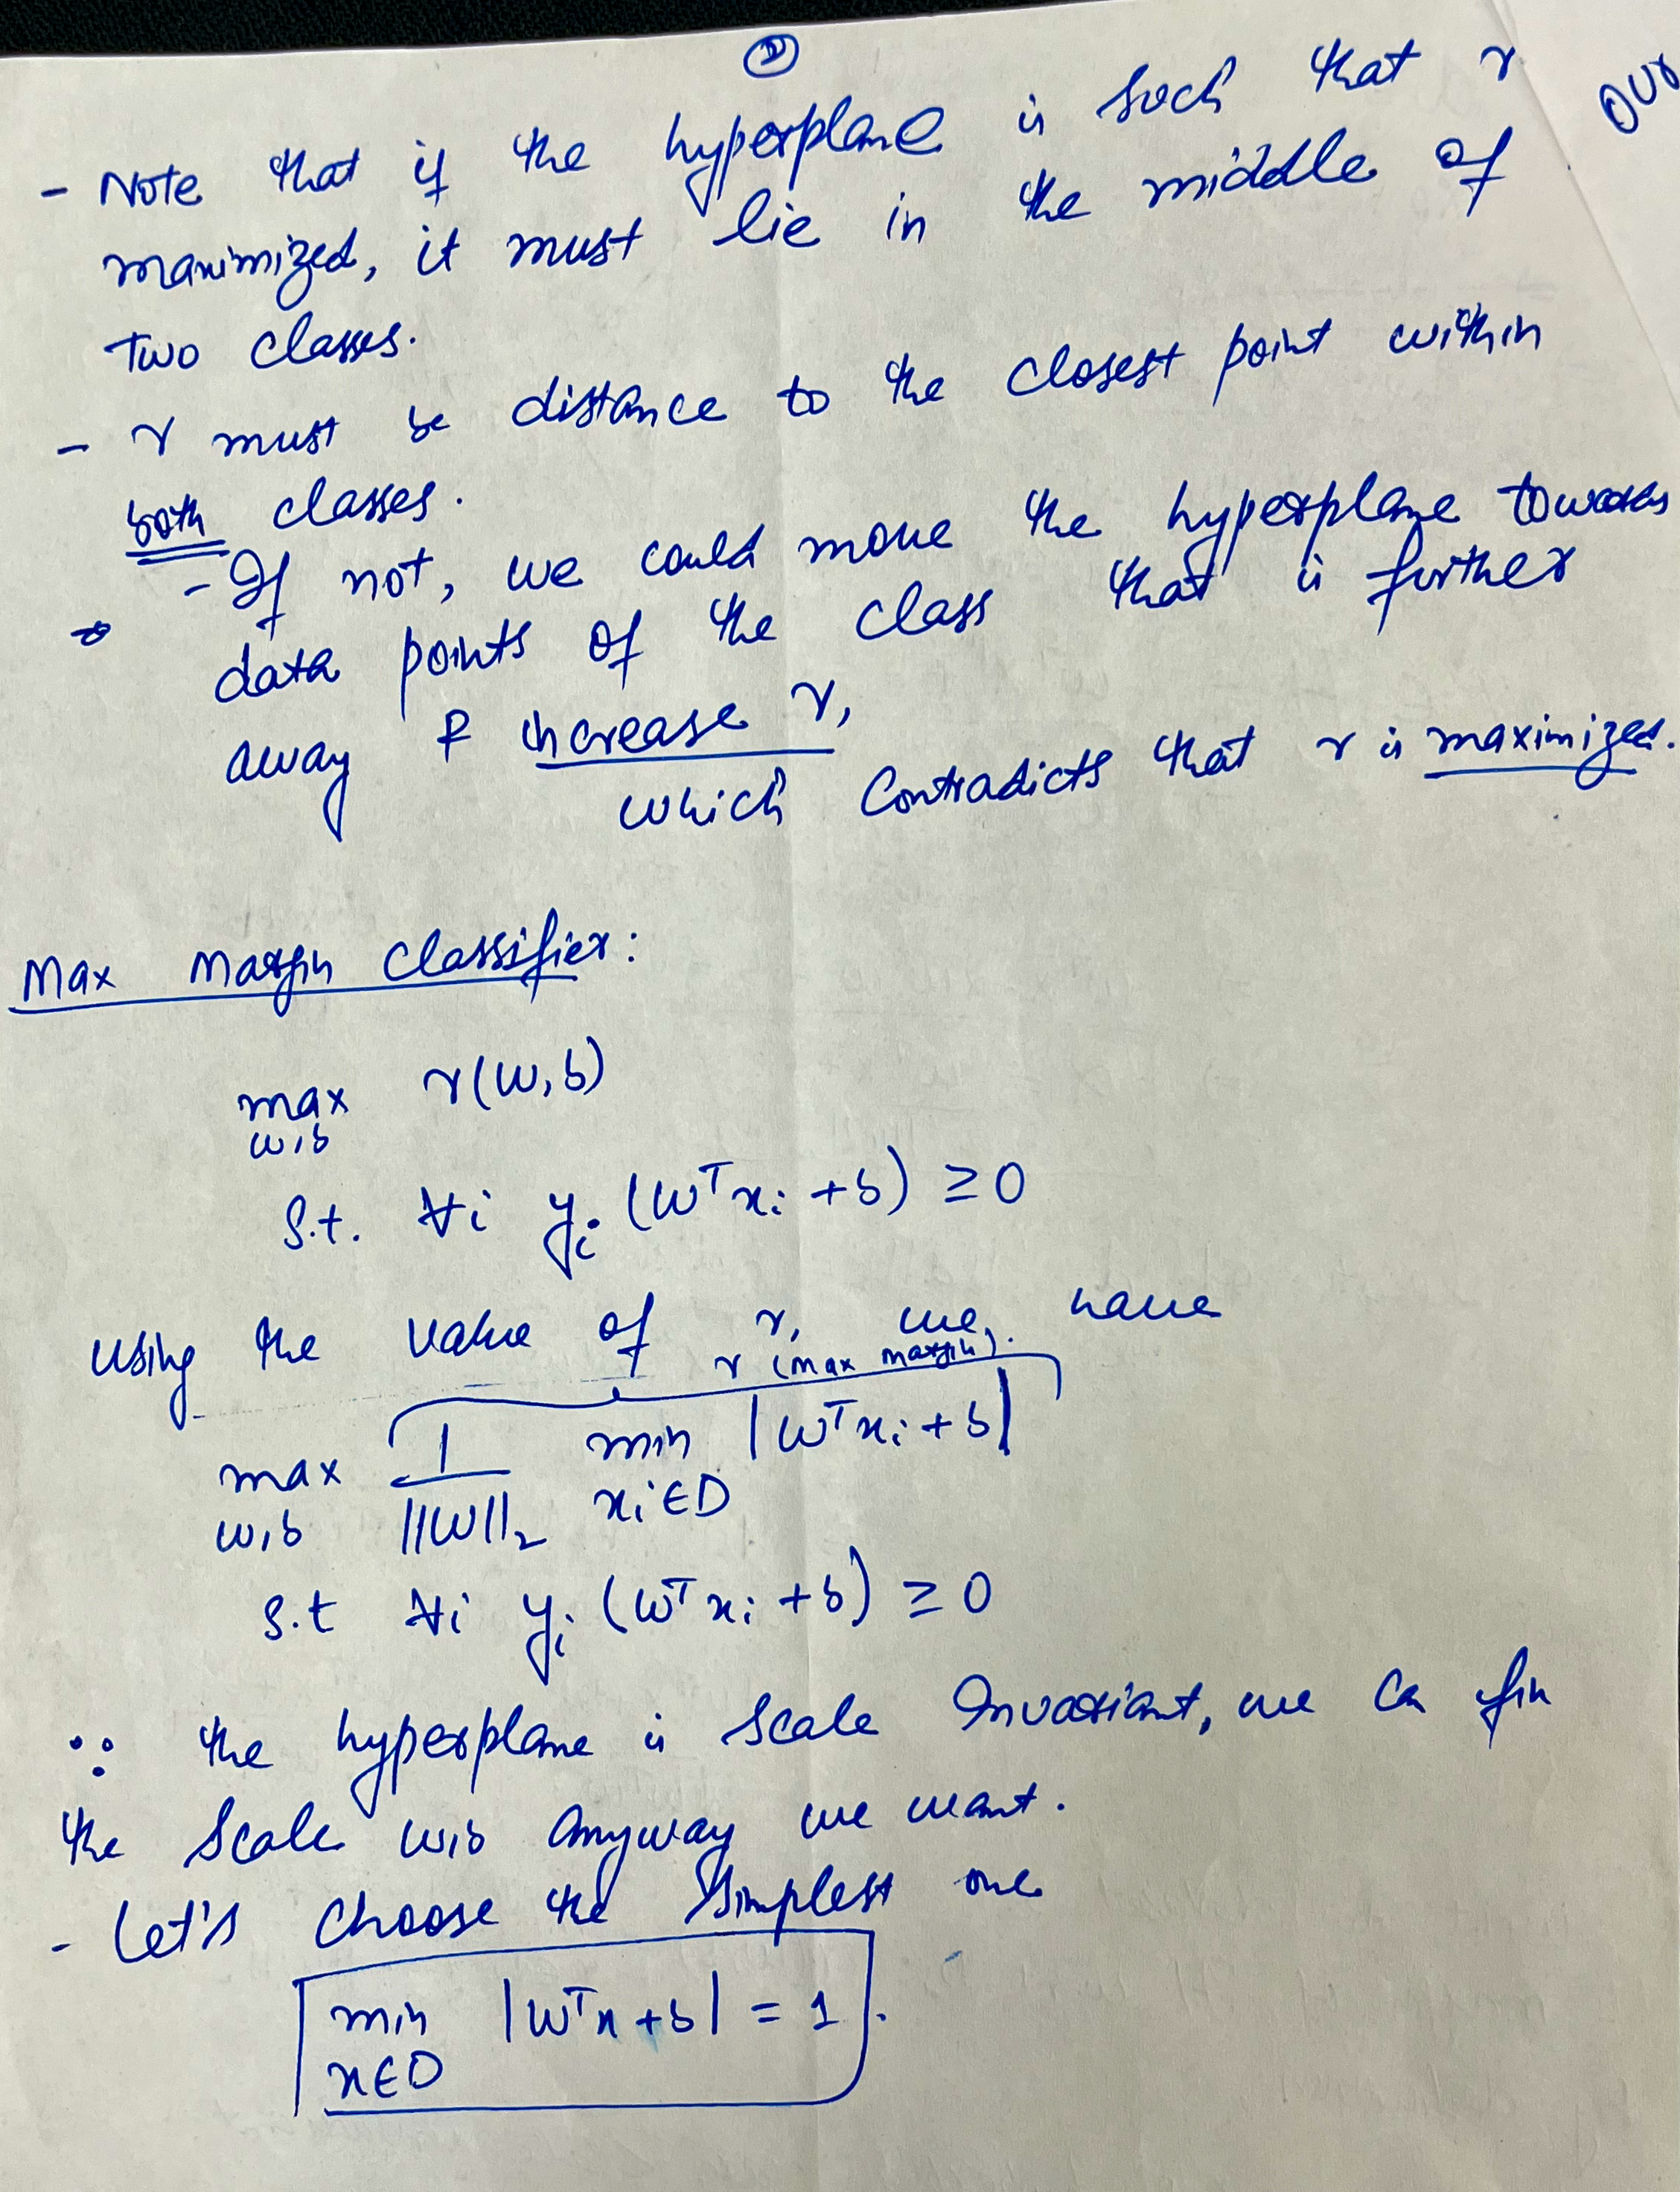 - Note that if the hyperplane is such that γ
maximized, it must lie in the middle of
two classes.
- γ must be distance to the closest point within
both classes.
- If not, we could move the hyperplane towards
data points of the class that is further
away & increase γ,
which contradicts that γ is maximized.
Max Margin Classifier:
max γ(w,b)
w,b
s.t. ∀i yᵢ (wᵀxᵢ + b) ≥ 0
using the value of γ, we have
γ (max margin).
max 1/||w||₂ min |wᵀxᵢ + b|
w,b xᵢ∈D
s.t ∀i yᵢ (wᵀxᵢ + b) ≥ 0
∵ the hyperplane is scale Invariant, we ca fix
the scale w,b anyway we want.
- Let's choose the simplest one
min |wᵀx + b| = 1.
x∈D
our